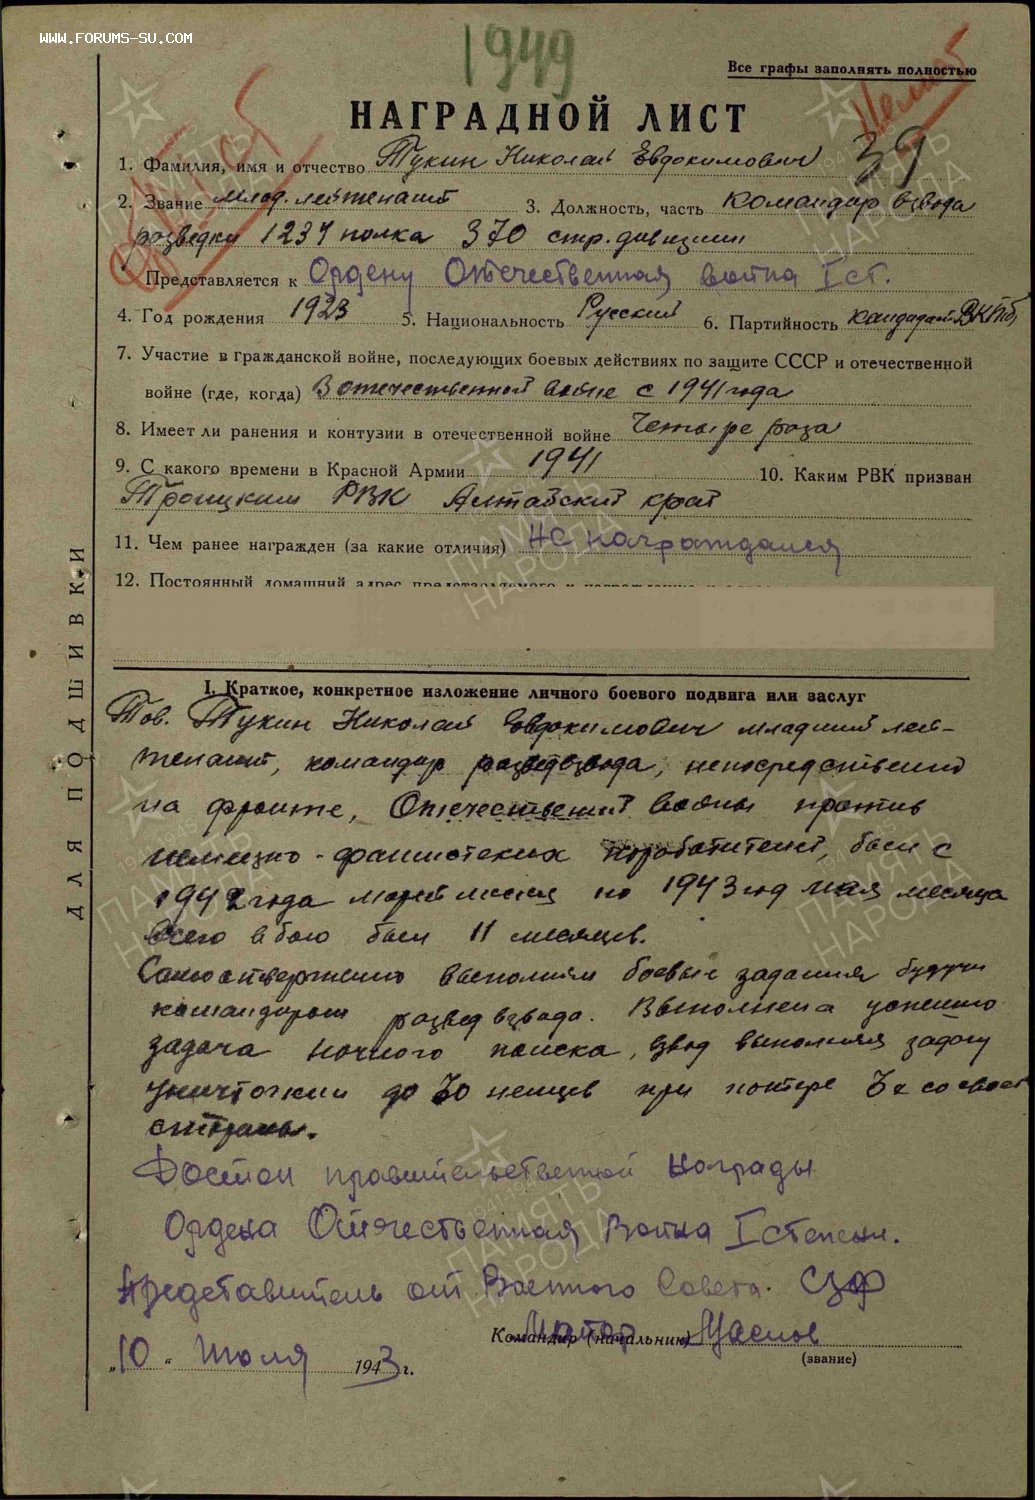 WWW.FORUMS-SU.COM
1949
Все графы заполнять полностью
НАГРАДНОЙ ЛИСТ
39
1. Фамилия, имя и отчество Тукин Николай Евдокимович
2. Звание млад. лейтенант 3. Должность, часть командир взвода
разведки 1234 полка 370 стр. дивизии
Представляется к Ордену Отечественная война I ст.
4. Год рождения 1923 5. Национальность Русский 6. Партийность кандидат ВКПб
7. Участие в гражданской войне, последующих боевых действиях по защите СССР и отечественной
войне (где, когда) В отечественной войне с 1941 года
8. Имеет ли ранения и контузии в отечественной войне Четыре раза
9. С какого времени в Красной Армии 1941 10. Каким РВК призван
Троицким РВК Алтайский край
11. Чем ранее награжден (за какие отличия) Не награждался
12. Постоянный домашний адрес представляемого к награждению
ДЛЯ ПОДШИВКИ
I. Краткое, конкретное изложение личного боевого подвига или заслуг
Тов. Тукин Николай Евдокимович младший лей-
тенант, командир разведвзвода, непосредственно
на фронте, Отечественной войны против
немецко-фашистских был с
1942 года месяца по 1943 год мая месяца
всего в бою был 11 месяцев.
Самоотверженно выполнял боевые задания будучи
командиром развед взвода. Выполнена успешно
задача ночного поиска, взвод выполняя задачу
уничтожил до 70 немцев при потере 3х со своей
стороны.
Достоин правительственной награды
Ордена Отечественная Война I степени.
Представитель от Военного Совета. СЗФ
Командир (начальник) Майор Маслов
(звание)
„10“ Июля 1943 г.
ПАМЯТЬ НАРОДА
1941-1945